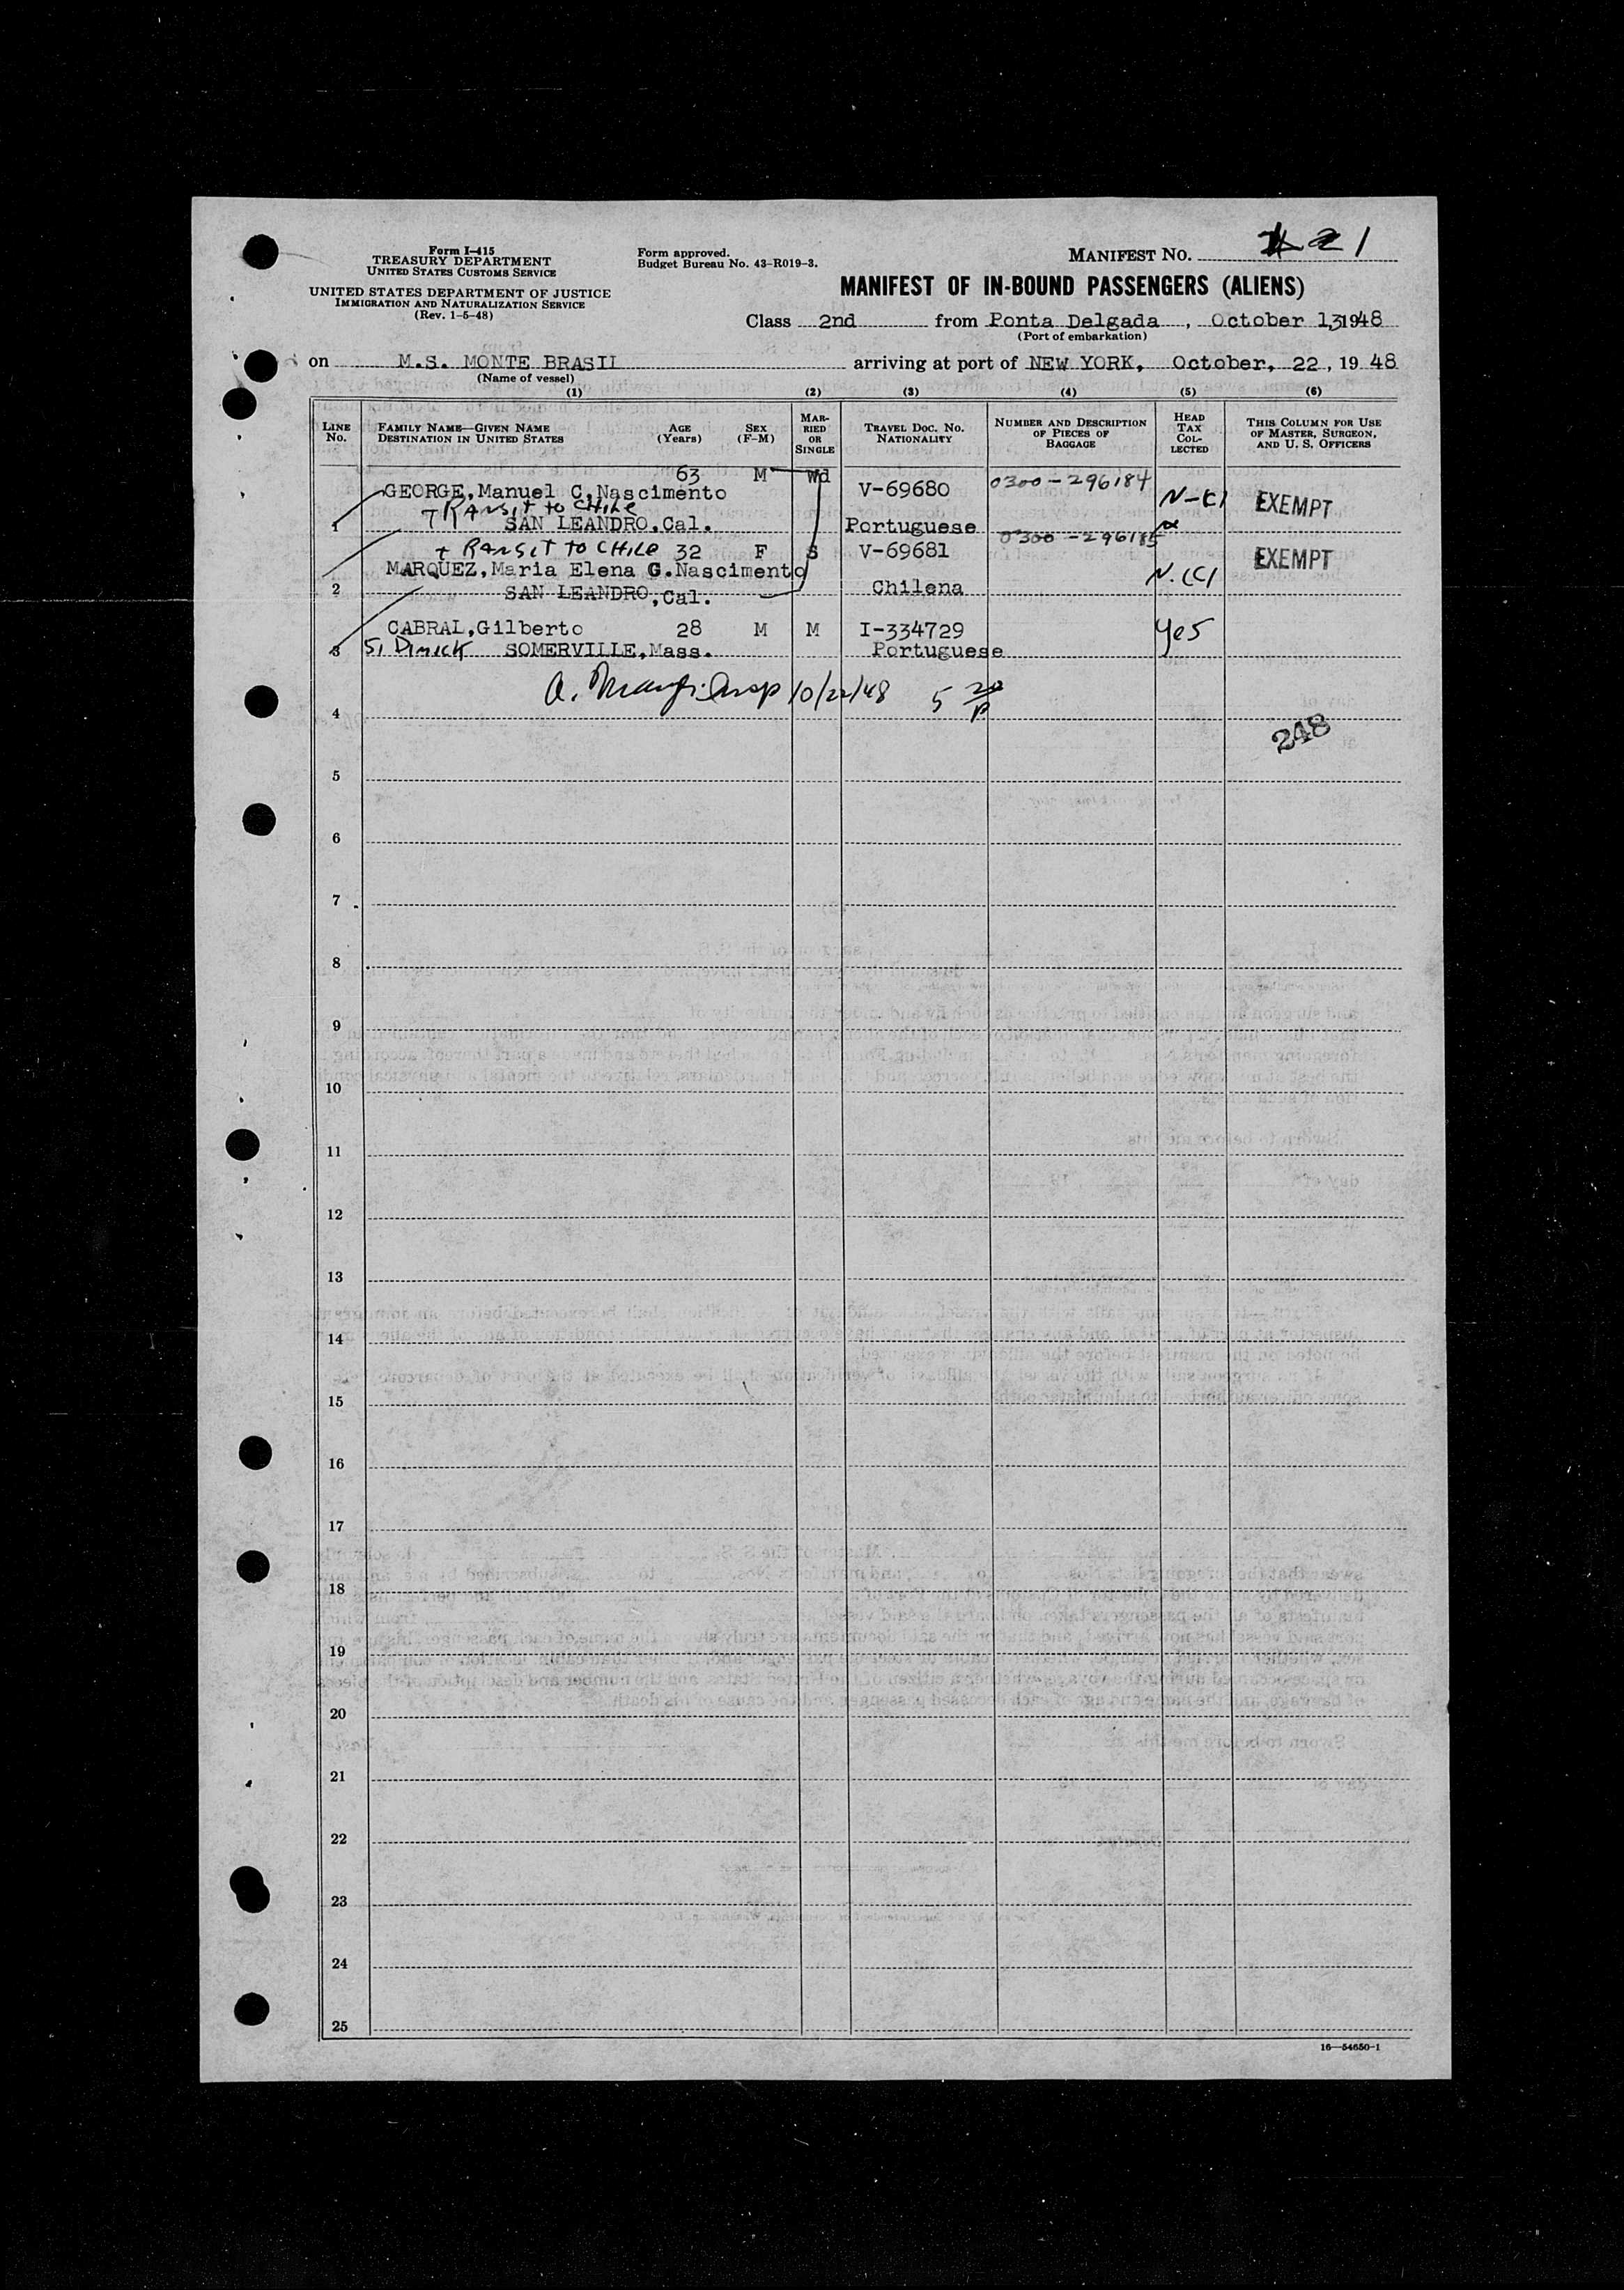 Form I-415
TREASURY DEPARTMENT
UNITED STATES CUSTOMS SERVICE
UNITED STATES DEPARTMENT OF JUSTICE
IMMIGRATION AND NATURALIZATION SERVICE
(Rev. 1-5-48)
Form approved.
Budget Bureau No. 43-R019-3.
MANIFEST NO. 1
MANIFEST OF IN-BOUND PASSENGERS (ALIENS)
Class 2nd from Ponta Delgada, October 13, 1948
(Port of embarkation)
on M.S. MONTE BRASIL arriving at port of NEW YORK, October, 22, 1948
(Name of vessel)
(1) (2) (3) (4) (5) (6)
LINE No. FAMILY NAME—GIVEN NAME DESTINATION IN UNITED STATES AGE (Years) SEX (F-M) MARRIED OR SINGLE TRAVEL DOC. NO. NATIONALITY NUMBER AND DESCRIPTION OF PIECES OF BAGGAGE HEAD TAX COLLECTED THIS COLUMN FOR USE OF MASTER, SURGEON, AND U. S. OFFICERS
63 M Wd
GEORGE, Manuel C, Nascimento V-69680 0300-296184 EXEMPT
TRANSIT TO CHILE
1 SAN LEANDRO, Cal. Portuguese
TRANSIT TO CHILE 32 F S V-69681 0300-296185 EXEMPT
MARQUEZ, Maria Elena G. Nascimento
2 SAN LEANDRO, Cal. Chilena
CABRAL, Gilberto 28 M M I-334729 Yes
3 SOMERVILLE, Mass. Portuguese
10/22/48 5
4
248
5
6
7
8
9
10
11
12
13
14
15
16
17
18
19
20
21
22
23
24
25
16—54650-1